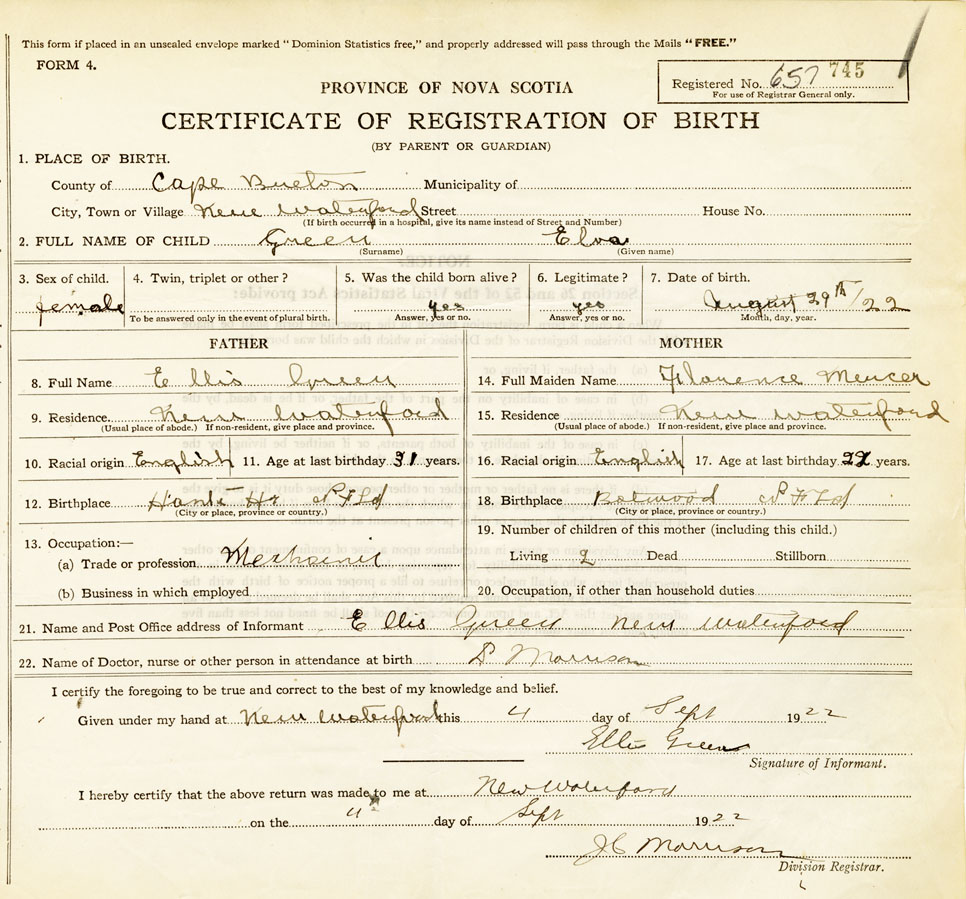 This form if placed in an unsealed envelope marked "Dominion Statistics free," and properly addressed will pass through the Mails "FREE."
FORM 4.
Registered No. 657 745
For use of Registrar General only.
PROVINCE OF NOVA SCOTIA
CERTIFICATE OF REGISTRATION OF BIRTH
(BY PARENT OR GUARDIAN)
1. PLACE OF BIRTH.
County of Cape Breton Municipality of
City, Town or Village New Waterford Street House No.
(If birth occurred in a hospital, give its name instead of Street and Number)
2. FULL NAME OF CHILD Green Elva
(Surname) (Given name)
3. Sex of child. 4. Twin, triplet or other? 5. Was the child born alive? 6. Legitimate? 7. Date of birth.
female yes yes August 29th/22
To be answered only in the event of plural birth. Answer, yes or no. Answer, yes or no. Month, day, year.
FATHER MOTHER
8. Full Name Ellis Green 14. Full Maiden Name Florence Mercer
9. Residence. New Waterford 15. Residence New Waterford
(Usual place of abode.) If non-resident, give place and province. (Usual place of abode.) If non-resident, give place and province.
10. Racial origin English 11. Age at last birthday 31 years. 16. Racial origin English 17. Age at last birthday years.
12. Birthplace Hants Hr NFLd 18. Birthplace Botwood NFLd
(City or place, province or country.) (City or place, province or country.)
19. Number of children of this mother (including this child.)
13. Occupation:—
(a) Trade or profession Mechanic Living 2 Dead Stillborn
(b) Business in which employed 20. Occupation, if other than household duties
21. Name and Post Office address of Informant Ellis Green New Waterford
22. Name of Doctor, nurse or other person in attendance at birth Morrison
I certify the foregoing to be true and correct to the best of my knowledge and belief.
Given under my hand at New Waterford this 4 day of Sept 1922
Ellis Green
Signature of Informant.
I hereby certify that the above return was made to me at New Waterford
on the day of Sept 1922
J C Morrison
Division Registrar.